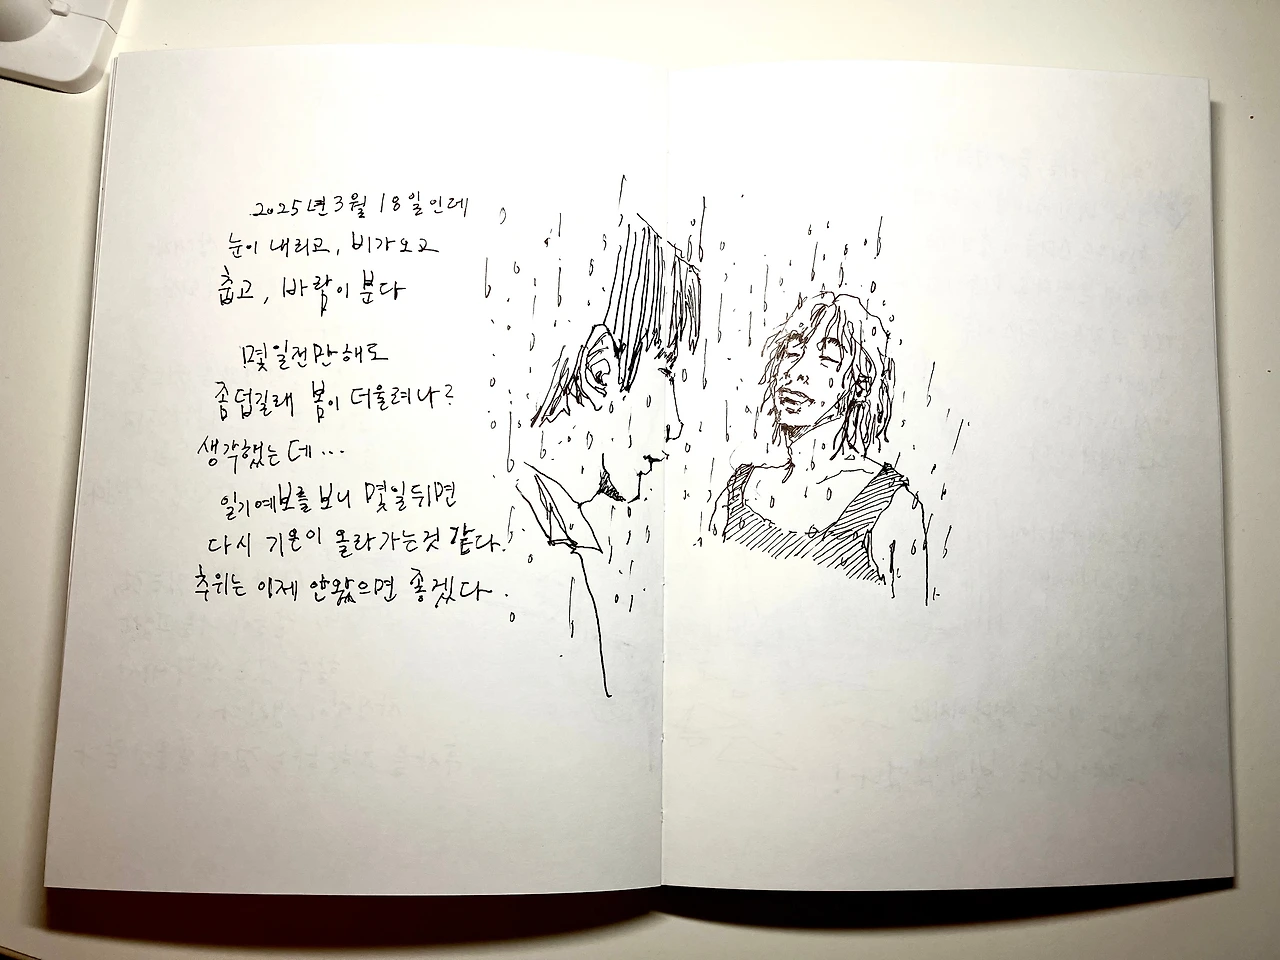 2025년 3월 18일인데
눈이 내리고, 비가오고
춥고, 바람이 분다
몇일전만해도
좀덥길래 봄이 더울려나?
생각했는데...
일기예보를 보니 몇일뒤면
다시 기온이 올라가는것 같다.
추위는 이제 안왔으면 좋겠다.